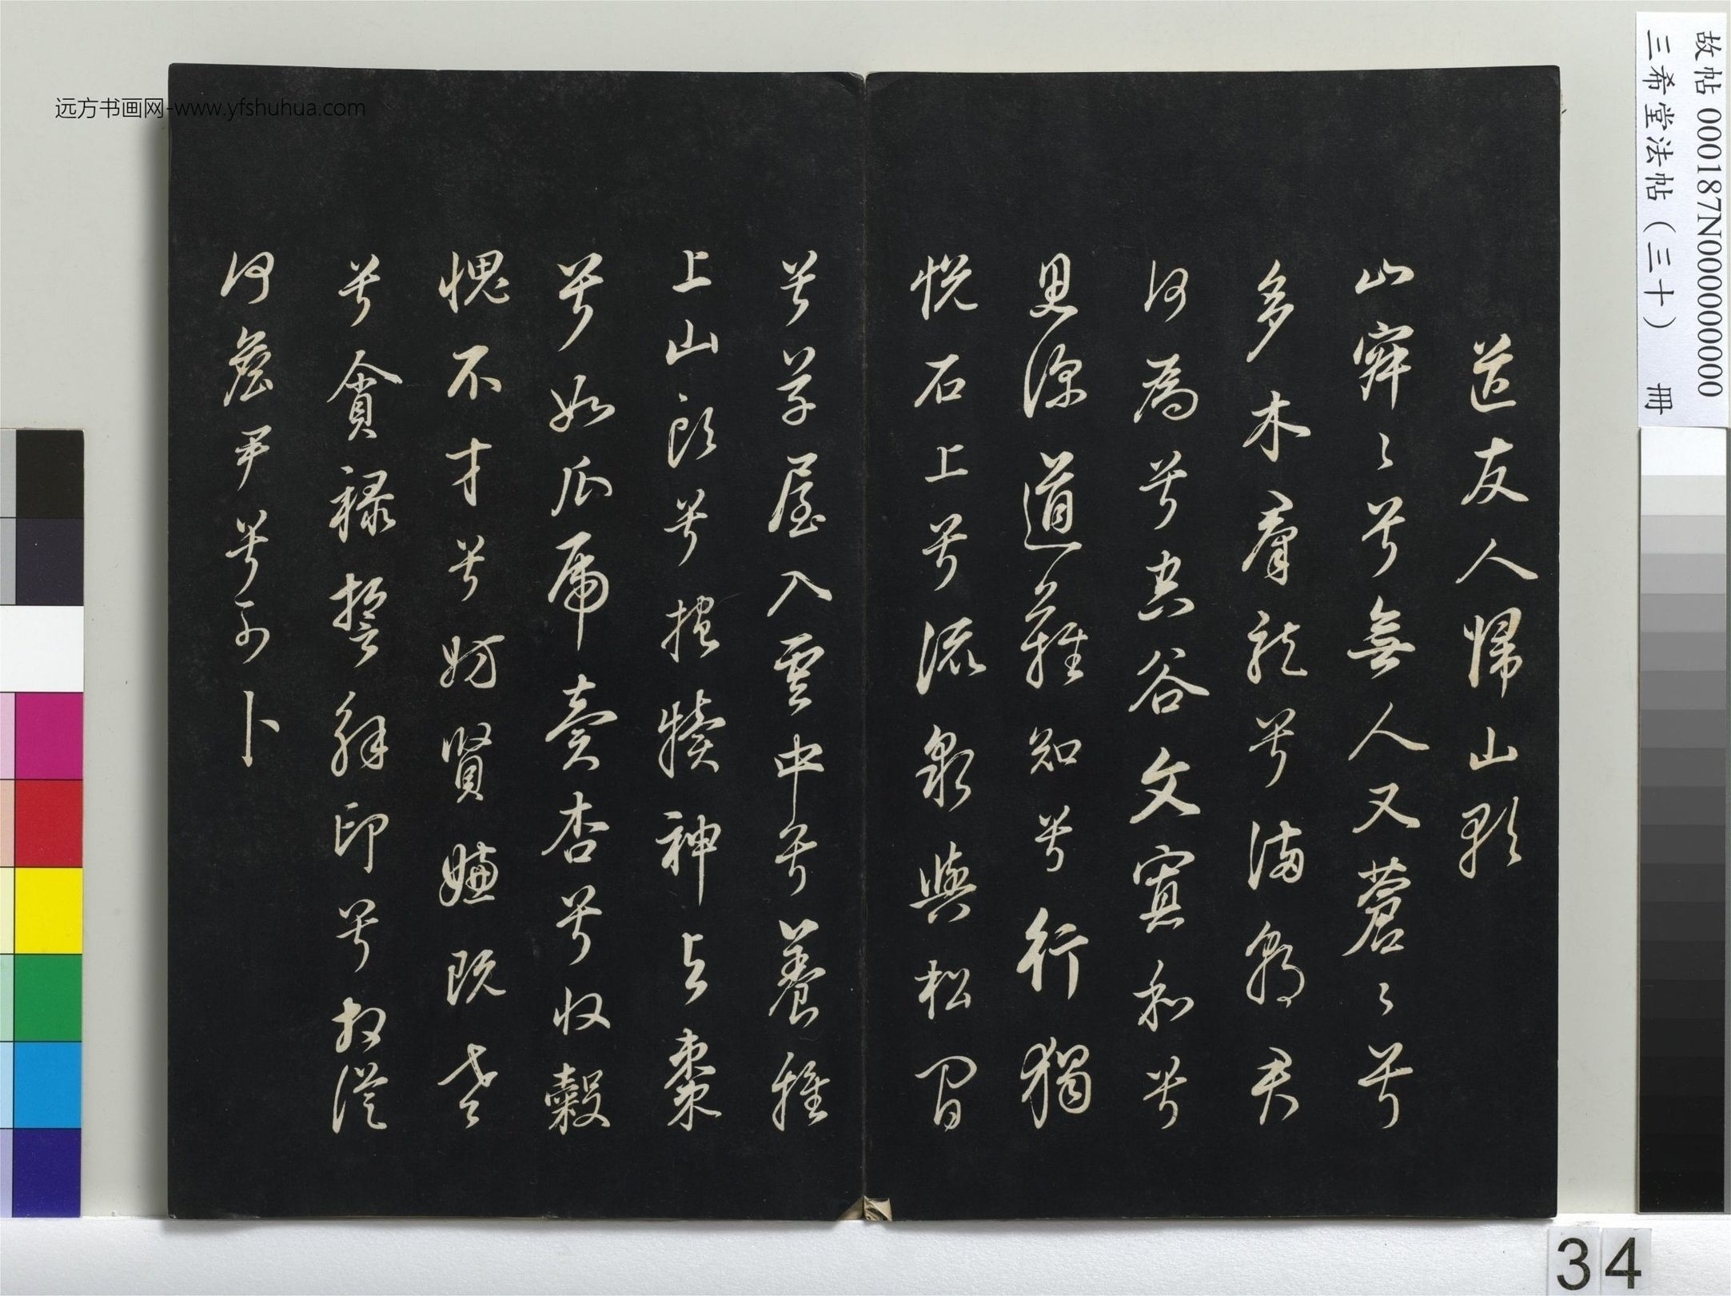 故帖 000187N000000000
三希堂法帖（三十） 冊
送友人歸山歌
山寂〻兮無人又蒼〻兮
多木羣龍兮滿朝君
何為兮空谷文寡和兮
思深道難知兮行獨
悅石上兮流泉與松間
兮草屋入雲中兮養雞
上山頭兮抱犢神与棗
兮如瓜虎賣杏兮收穀
愧不才兮妨賢嫌既老
兮貪祿誓解印兮相從
何詹尹兮可卜
远方书画网-www.yfshuhua.com
34